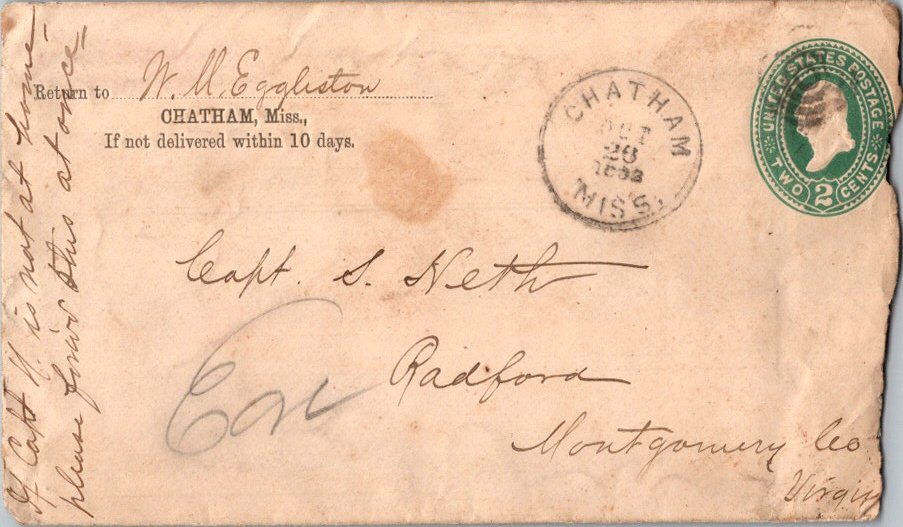 If Capt N. is not at home-
please forw this at once-
Return to W. M. Eggleston
CHATHAM, Miss.,
If not delivered within 10 days.
CHATHAM
OCT
28
MISS.
UNITED STATES POSTAGE
TWO 2 CENTS
Capt. S. Neth
Radford
Montgomery Co
Virgin